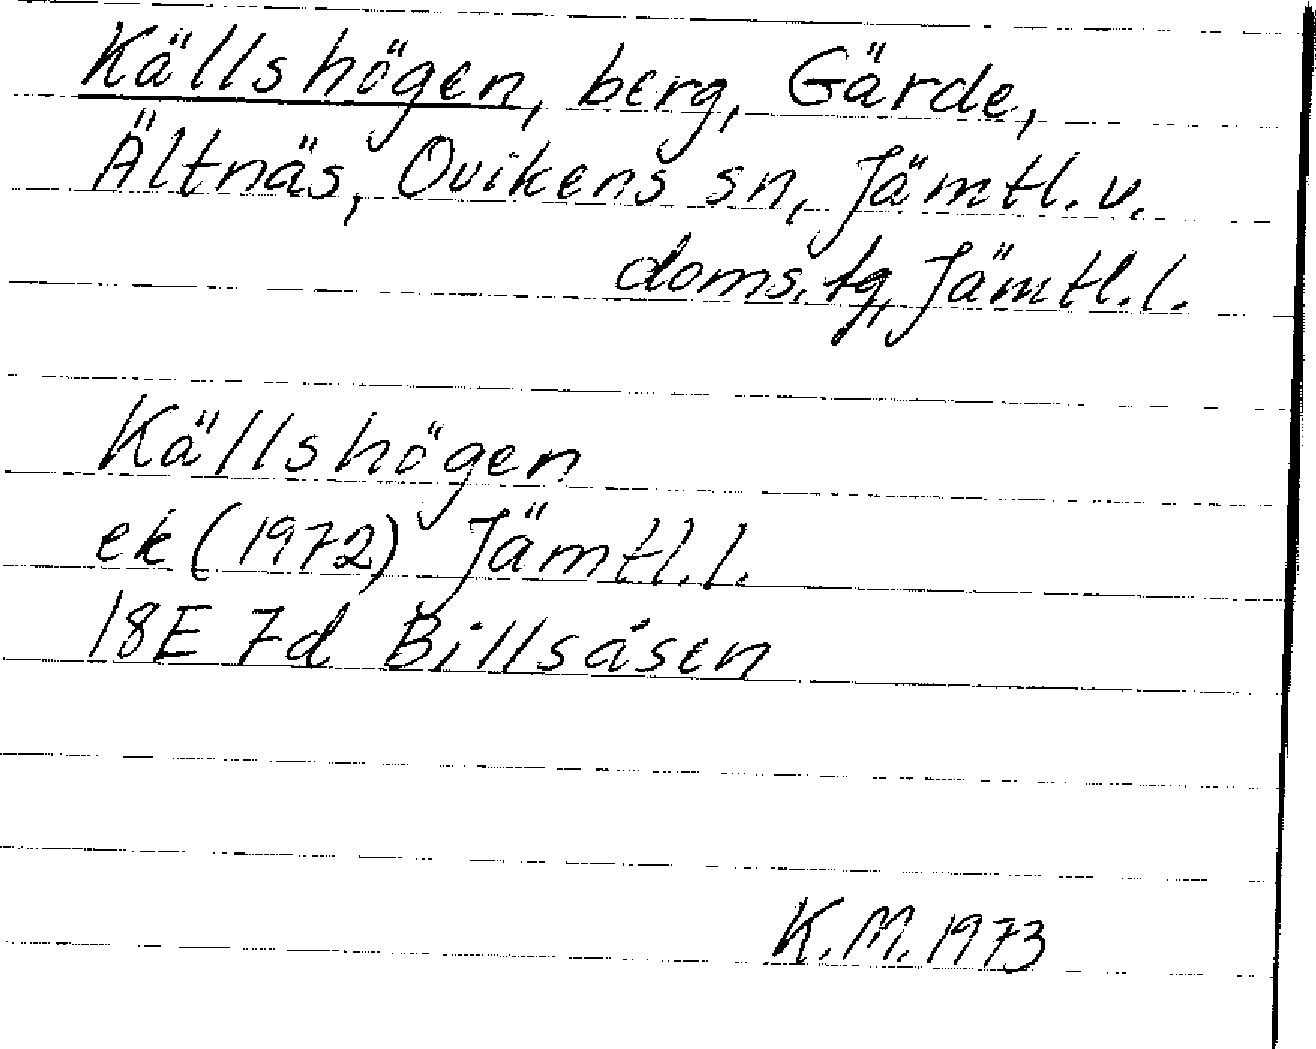 Källshögen, berg, Gärde,
Ältnäs, Ovikens sn, Jämtl. v.
doms. tg, Jämtl. l.
Källshögen
ek (1972) Jämtl. l.
18E 7d Billsåsen
K. M. 1973